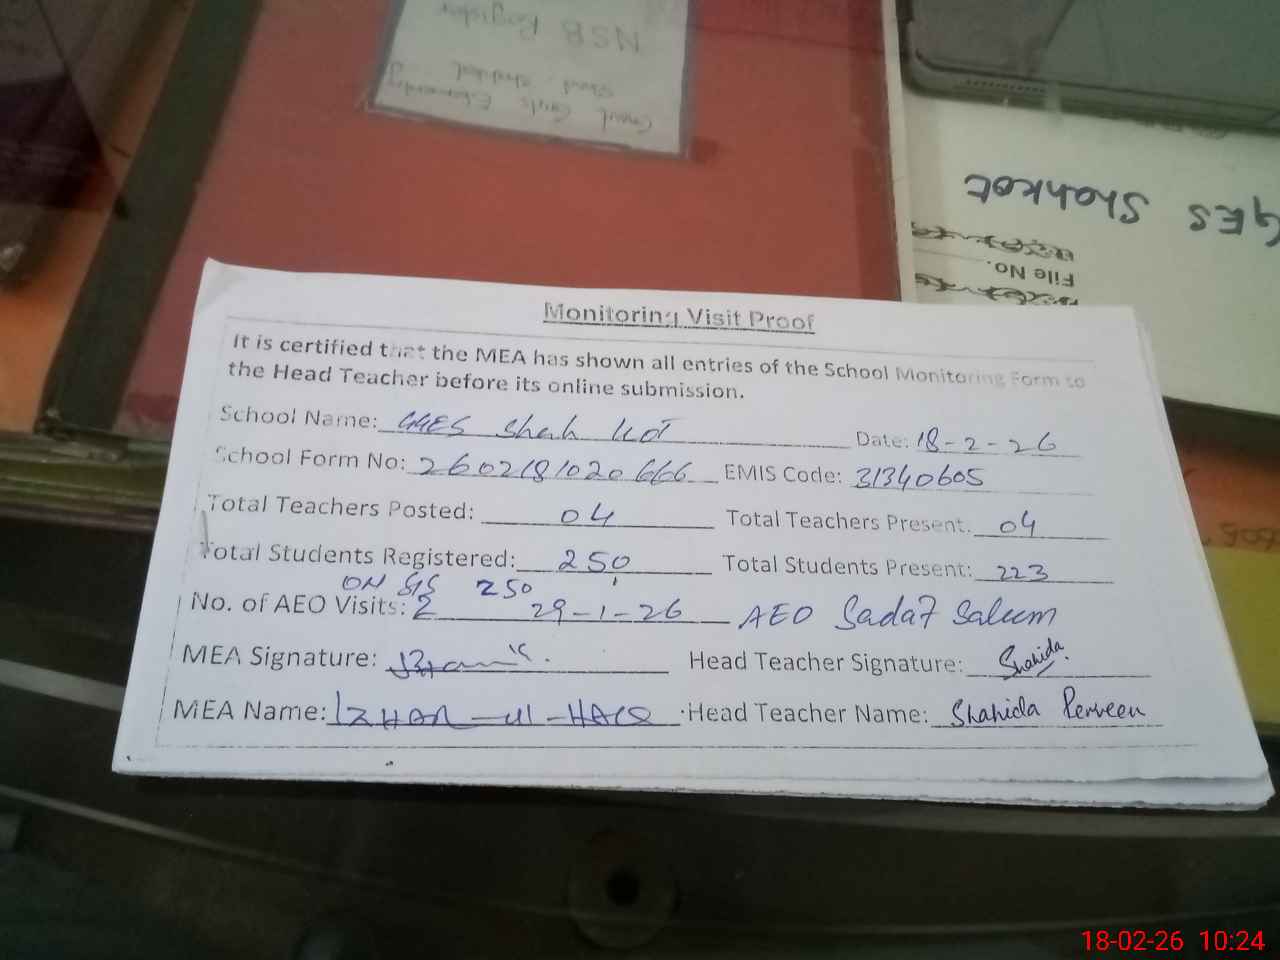 NSB Register
Shah
Govt Girls Elementary
GES Shahkot
File No.
Monitoring Visit Proof
It is certified that the MEA has shown all entries of the School Monitoring Form to
the Head Teacher before its online submission.
School Name: GGES Shah KOT Date: 18-2-26
School Form No: 2602181020666 EMIS Code: 31340605
Total Teachers Posted: 04 Total Teachers Present. 04
Total Students Registered: 250 Total Students Present: 223
ON SIS 250
No. of AEO Visits: 2 29-1-26 AEO Sadaf Saleem
MEA Signature: Head Teacher Signature: Shahida.
MEA Name: IZHAR-ul-HAQ Head Teacher Name: Shahida Perveen
18-02-26 10:24